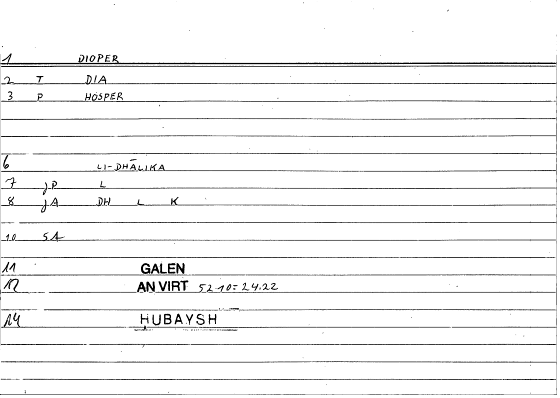 1 DIOPER
2 T DIA
3 P HOSPER
6 LI-DHĀLIKA
7 JP L
8 JA DH L K
10 SA
11 GALEN
12 AN VIRT 52 10 = 24.22
14 HUBAYSH